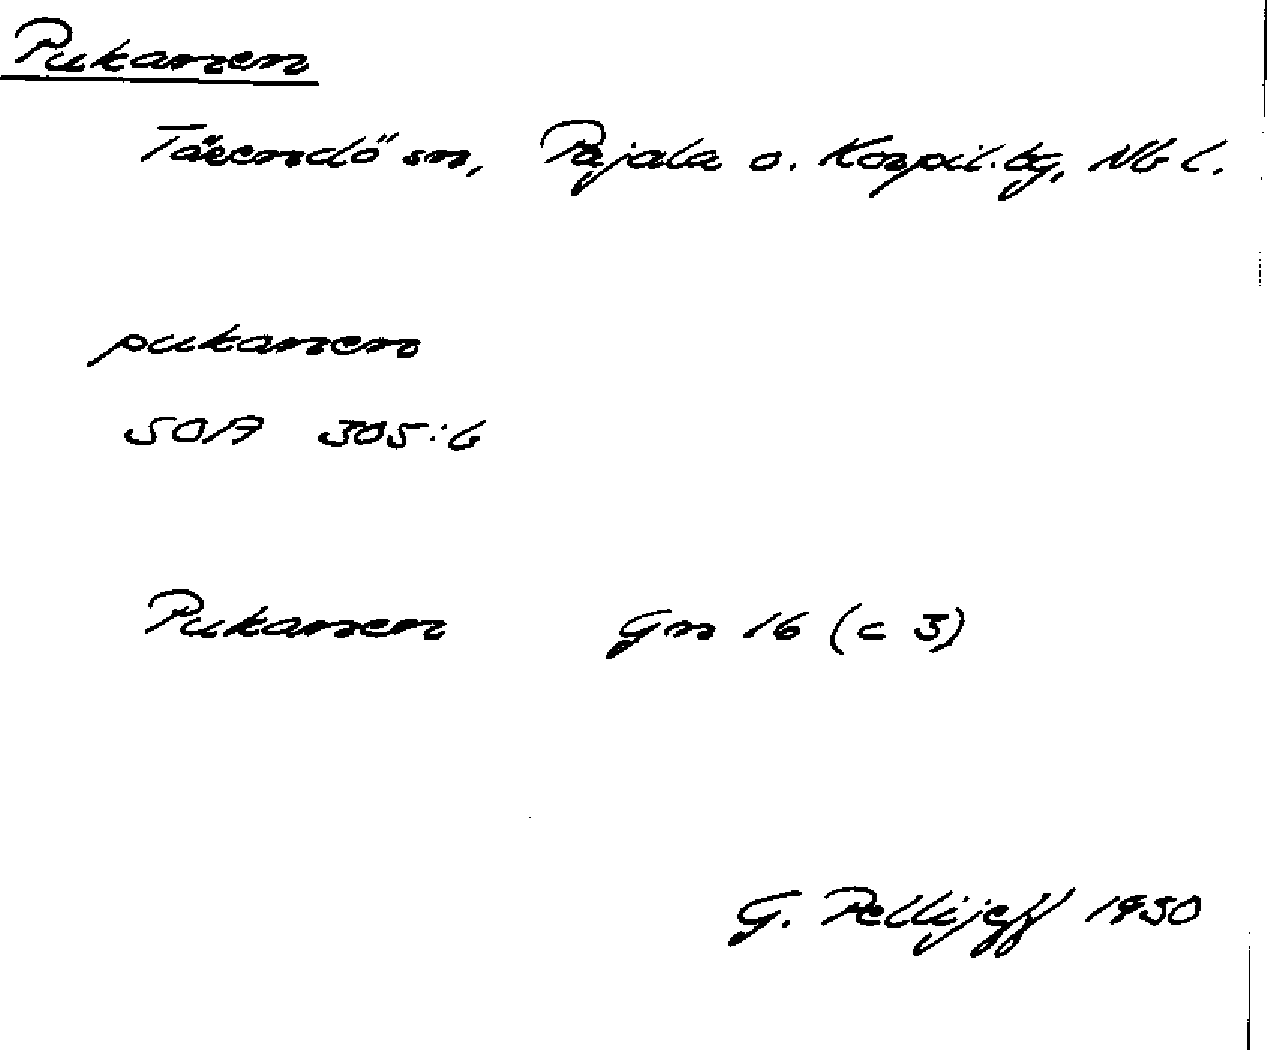 Pukanen
Tärendö sn, Pajala o. Korpil. tg, Nb l.
pukanen
SOA 305:6
Pukanen Gn 16 (c 3)
G. Pellijeff 1950